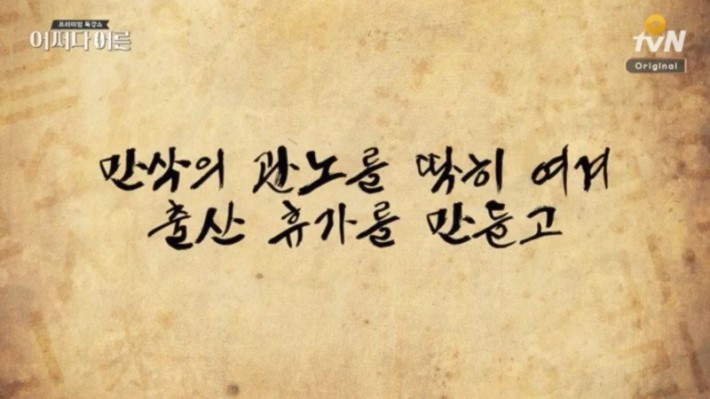 프리미엄 특강쇼
어쩌다 어른
tvN
Original
만삭의 관노를 딱히 여겨
출산 휴가를 만들고